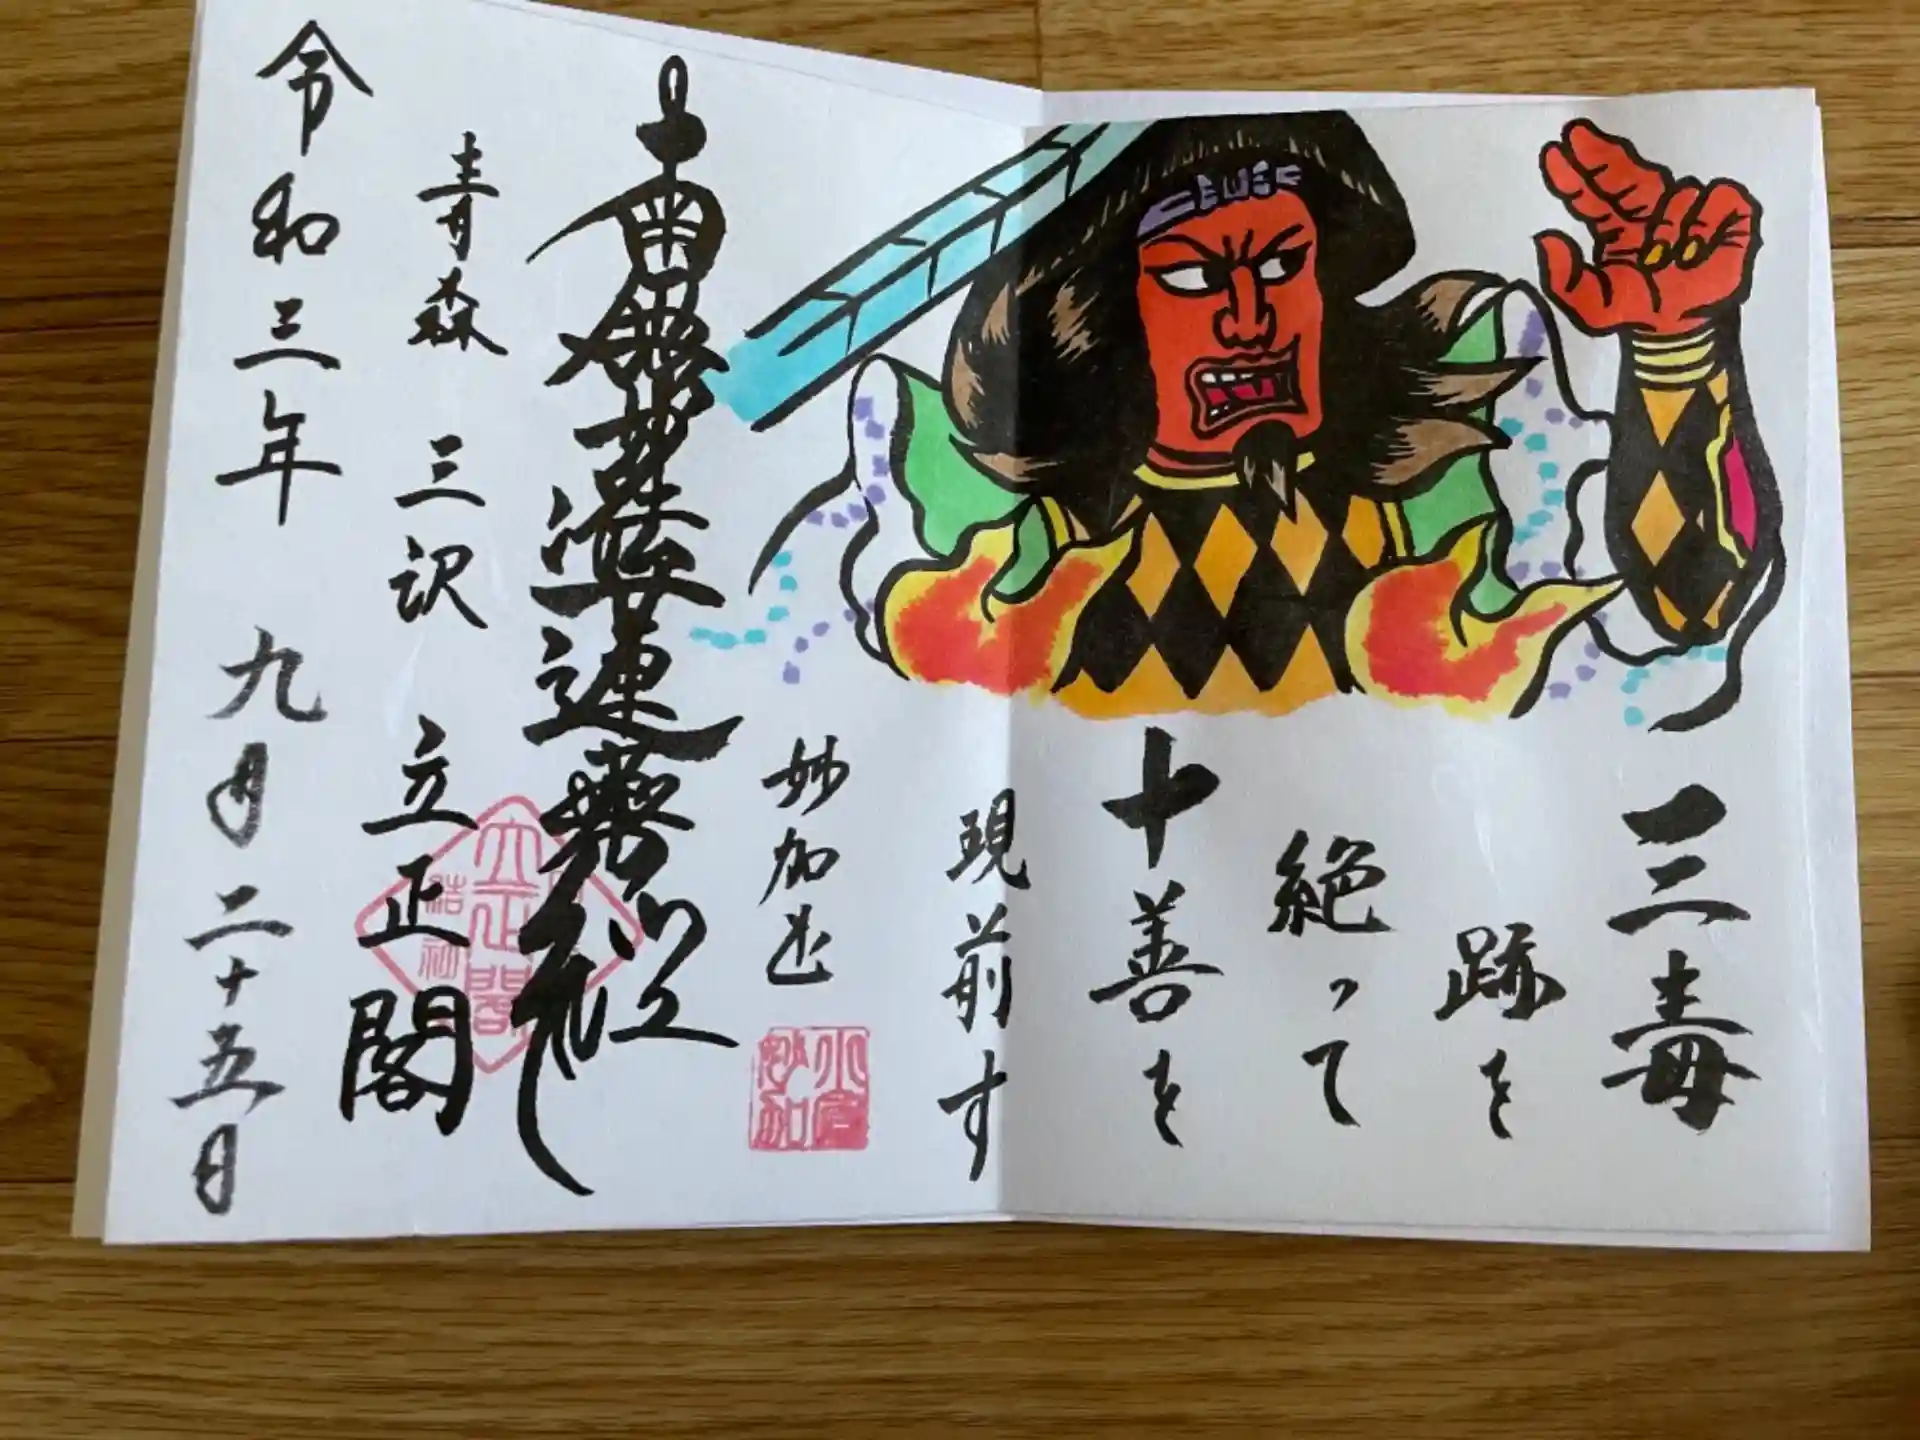 三毒
跡を
絶って
十善を
現前す
妙加
南無妙法蓮華経
青森 三沢 立正閣
立正閣
令和三年 九月二十五日